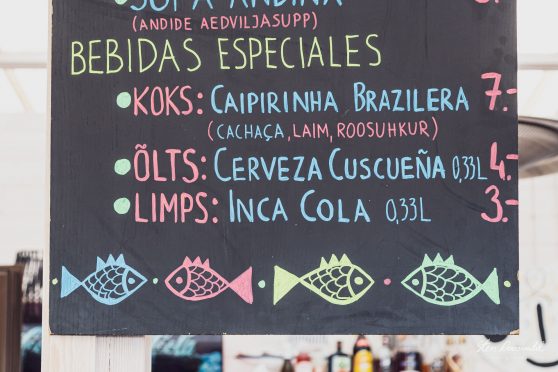 SOPA ANDINA
(ANDIDE AEDVILJASUPP)
BEBIDAS ESPECIALES
KOKS: CAIPIRINHA BRAZILERA 7.-
(CACHAÇA, LAIM, ROOSUHKUR)
ÕLTS: CERVEZA CUSCUEÑA 0,33L 4.-
LIMPS: INCA COLA 0,33L 3.-